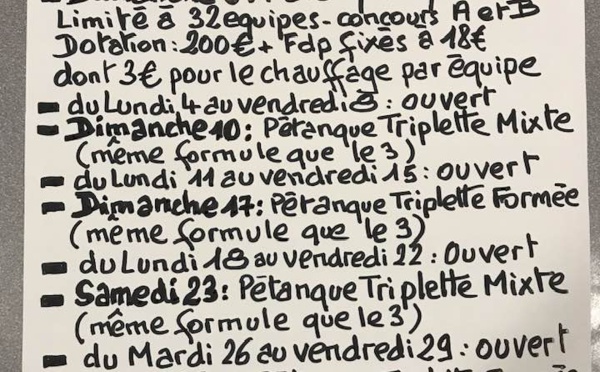 Limité à 32 équipes - concours A et B
Dotation : 200€ + Fdp fixés à 18€
dont 3€ pour le chauffage par équipe
- du Lundi 4 au vendredi 8 : ouvert
- Dimanche 10 : Pétanque Triplette Mixte
(même formule que le 3)
- du Lundi 11 au vendredi 15 : ouvert
- Dimanche 17 : Pétanque Triplette Formée
(même formule que le 3)
- du Lundi 18 au vendredi 22 : Ouvert
- Samedi 23 : Pétanque Triplette Mixte
(même formule que le 3)
- du Mardi 26 au vendredi 29 : ouvert